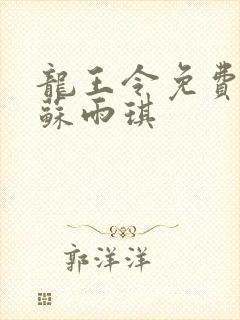 龍王令免費
蘇雨琪
郭洋洋